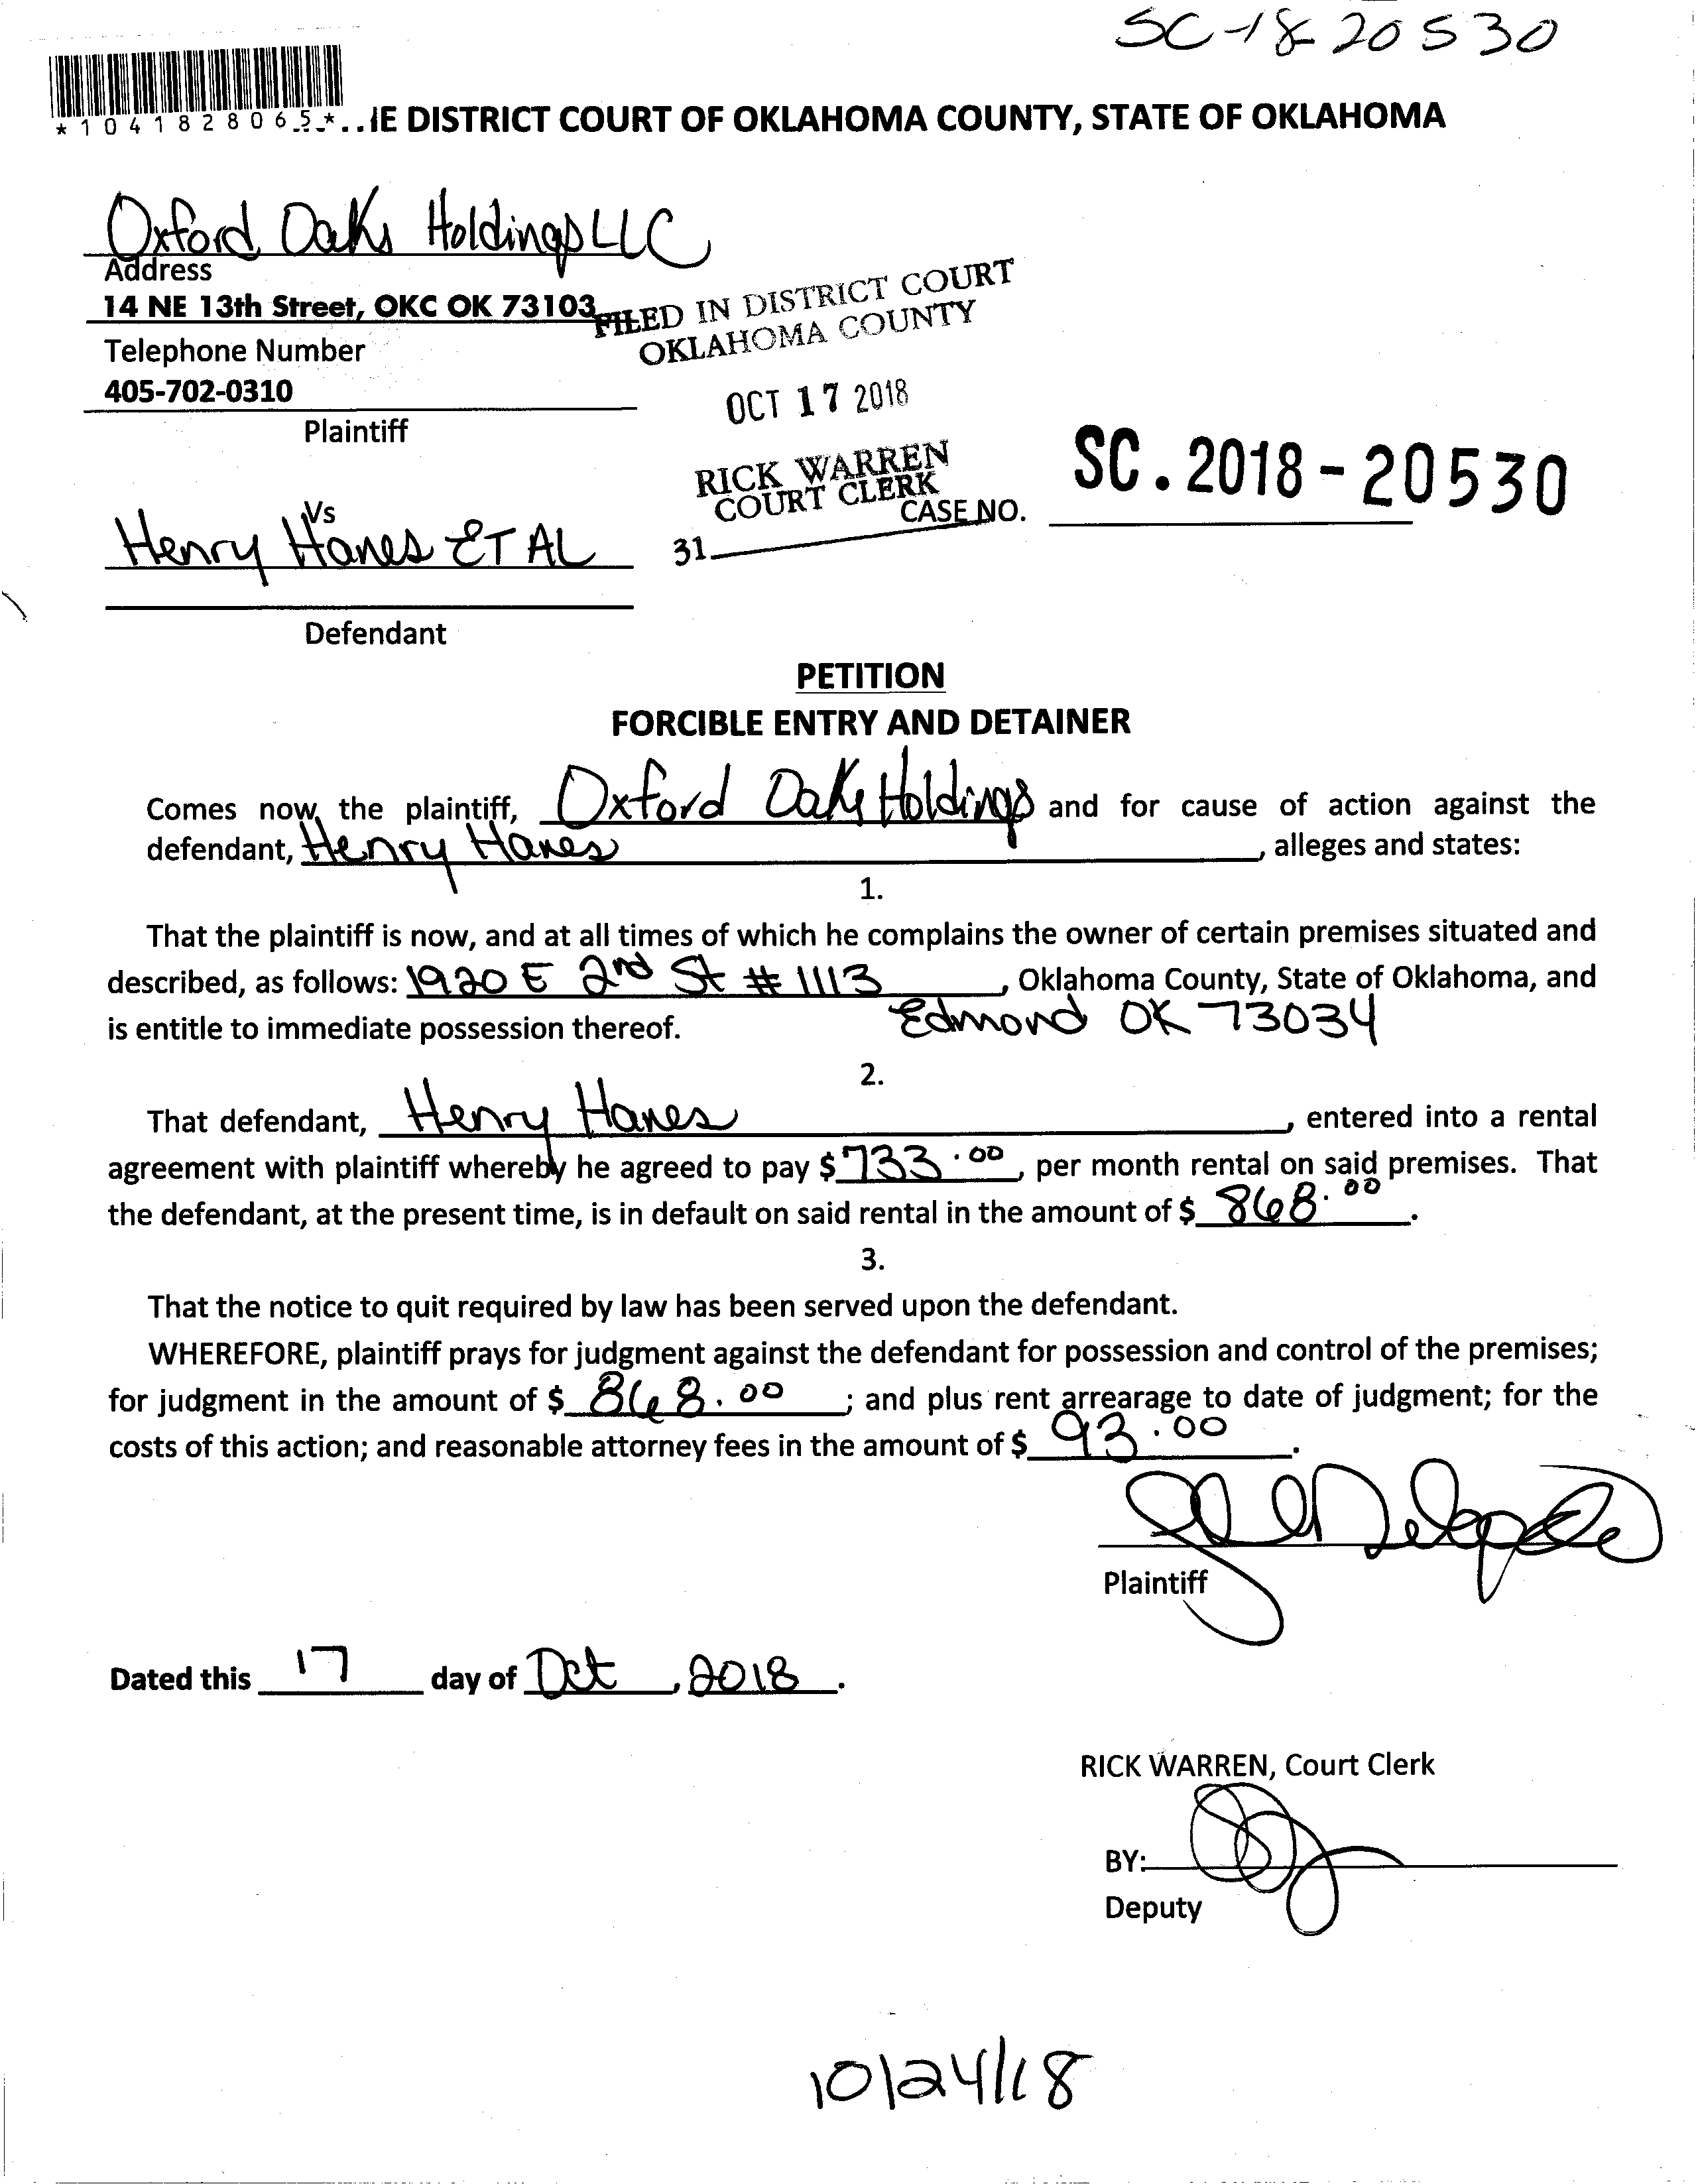 SC-18-20530
*1041828065*..IE DISTRICT COURT OF OKLAHOMA COUNTY, STATE OF OKLAHOMA
Oxford Oaks Holdings LLC
Address
14 NE 13th Street, OKC OK 73103
FILED IN DISTRICT COURT
OKLAHOMA COUNTY
Telephone Number
405-702-0310
OCT 17 2018
Plaintiff
RICK WARREN
COURT CLERK
SC.2018-20530
CASE NO.
Vs
Henry Hanes ET AL
31
Defendant
PETITION
FORCIBLE ENTRY AND DETAINER
Comes now, the plaintiff, Oxford Oaks Holdings and for cause of action against the
defendant, Henry Hanes, alleges and states:
1.
That the plaintiff is now, and at all times of which he complains the owner of certain premises situated and
described, as follows: 1920 E 2nd St # 1113, Oklahoma County, State of Oklahoma, and
is entitle to immediate possession thereof. Edmond OK 73034
2.
That defendant, Henry Hanes, entered into a rental
agreement with plaintiff whereby he agreed to pay $ 733.00, per month rental on said premises. That
the defendant, at the present time, is in default on said rental in the amount of $ 868.00.
3.
That the notice to quit required by law has been served upon the defendant.
WHEREFORE, plaintiff prays for judgment against the defendant for possession and control of the premises;
for judgment in the amount of $ 868.00; and plus rent arrearage to date of judgment; for the
costs of this action; and reasonable attorney fees in the amount of $ 93.00.
Plaintiff
Dated this 17 day of Oct, 2018.
RICK WARREN, Court Clerk
BY:
Deputy
10/24/18